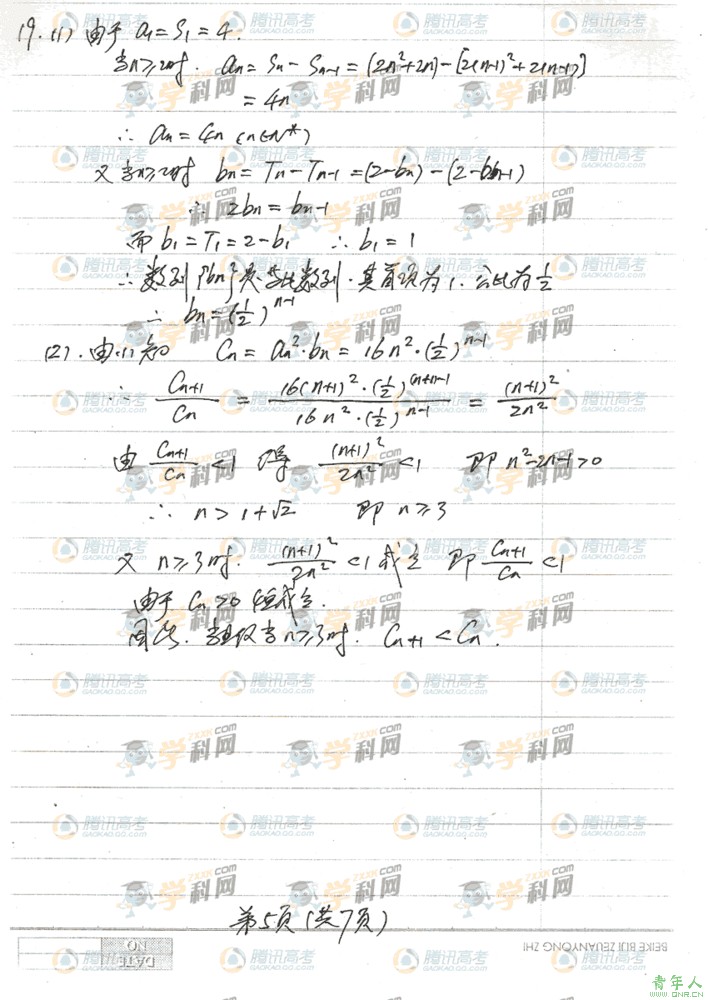 19.(1) 由于 a₁=S₁=4.
当n≥2时. aₙ=Sₙ-Sₙ₋₁=(2n²+2n)-[2(n-1)²+2(n-1)]
=4n
∴ aₙ=4n (n∈N*)
又当n≥2时 bₙ=Tₙ-Tₙ₋₁=(2-bₙ)-(2-bₙ₋₁)
∴ 2bₙ=bₙ₋₁
而 b₁=T₁=2-b₁ ∴ b₁=1
∴ 数列{bₙ}是等比数列.其首项为1.公比为1/2
∴ bₙ=(1/2)ⁿ⁻¹
(2).由(1)知 Cₙ=aₙ²·bₙ=16n²·(1/2)ⁿ⁻¹
∴ Cₙ₊₁/Cₙ = 16(n+1)²·(1/2)⁽ⁿ⁺¹⁾⁻¹/16n²·(1/2)ⁿ⁻¹ = (n+1)²/2n²
由 Cₙ₊₁/Cₙ<1 得 (n+1)²/2n²<1 即 n²-2n-1>0
∴ n>1+√2 即 n≥3
又 n≥3时. (n+1)²/2n²<1成立 即 Cₙ₊₁/Cₙ<1
由于 Cₙ>0 恒成立.
因此.当且仅当n≥3时. Cₙ₊₁<Cₙ.
第5页(共7页)
DATE
NO
BEIKE BIJI ZEUANYONG ZHI
腾讯高考
GAOKAO.QQ.COM
学科网
ZXXK.com
青年人
www.QNR.CN